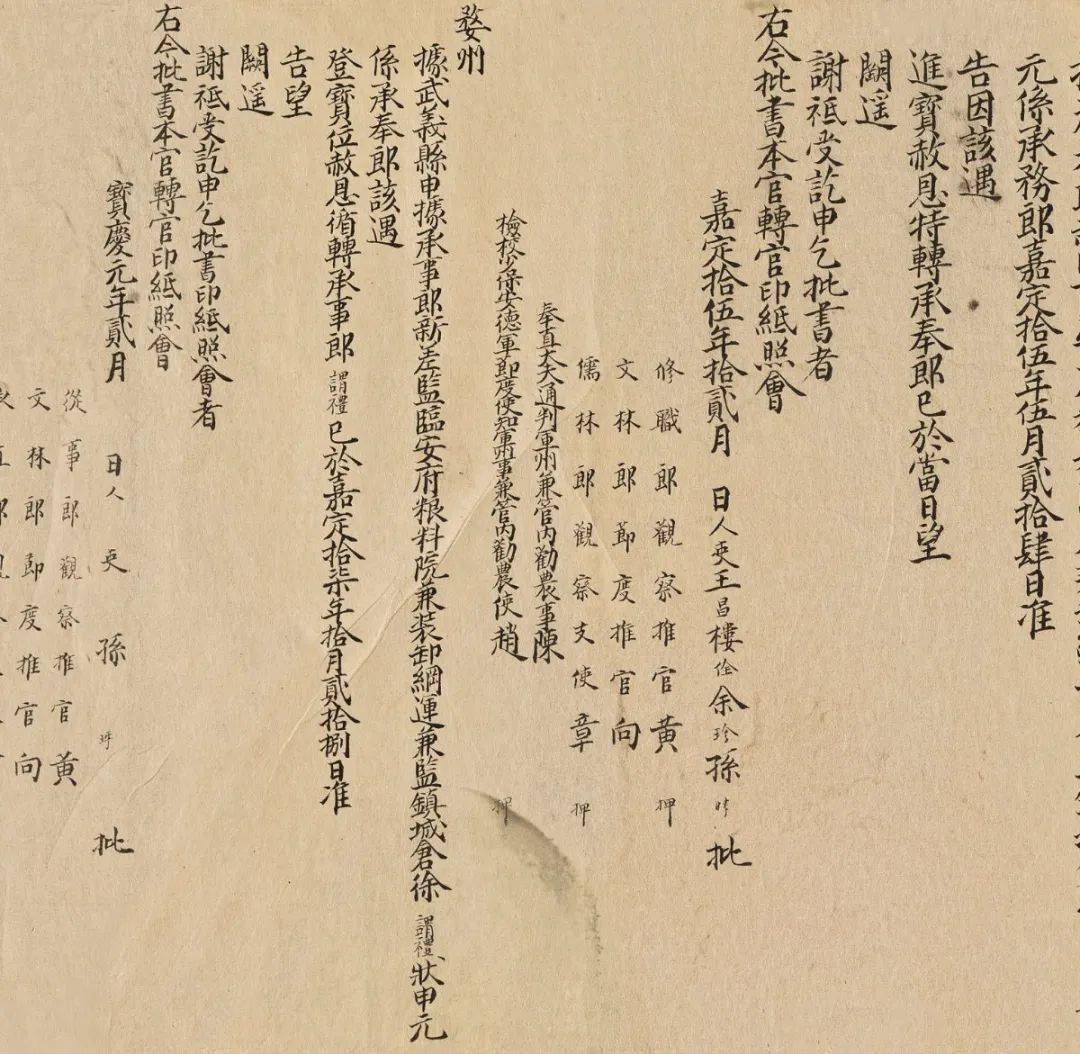 元係承務郎嘉定拾伍年伍月貳拾肆日准
告因該遇
進寶赦恩特轉承奉郎已於當日望
闕遥
謝祗受訖申乞批書者
右今批書本官轉官印紙照會
嘉定拾伍年拾貳月 日人吏王昌樓佺余珍孫 批
修職郎觀察推官黄 押
文林郎節度推官向
儒林郎觀察支使章 押
奉直大夫通判軍州兼管内勸農事陳
檢校少保安德軍節度使知軍州事兼管内勸農使趙 押
婺州
據武義縣申據承事郎新差監臨安府粮料院兼装卸綱運兼監鎮城倉徐謂禮狀申元
係承奉郎該遇
登寶位赦恩循轉承事郎謂禮已於嘉定拾柒年拾月貳拾捌日准
告望
闕遥
謝祗受訖申乞批書印紙照會者
右今批書本官轉官印紙照會
寶慶元年貳月 日人吏孫 批
從事郎觀察推官黄
文林郎節度推官向